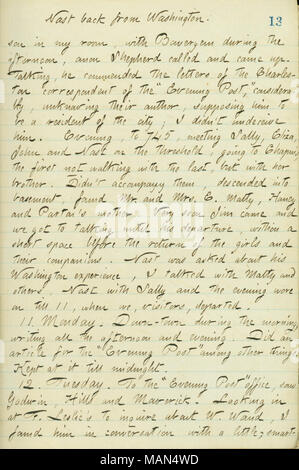 Nast back from Washington.
13
son in my room, with Baver, em during the
afternoon, anon Shepherd called and came up.
Talking, he commended the letters of the Charles-
ton correspondent of the "Evening Post," considera
bly, unknowing their author, supposing him to
be a resident of the city, I didn't undeceive
him. Evening, to 745, meeting Sally, Eliza
John and Nast on the threshold, going to Chapin's,
the first not walking with the last, but with her
brother. Didn't accompany them, descended into
basement, found Mr. and Mrs. E, Matty, Haney
and Parton's mother. Very soon Jim came and
we got to talking until his departure, within a
short space before the return of the girls and
their companions. Nast was asked about his
Washington experience, I talked with Matty and
others, Nast with Sally and the evening wore
on till 11, when we, visitors, departed.
11. Monday. Down-town during the morning,
writing all the afternoon and evening. Did an
article for the "Evening Post" among other things.
Kept at it till midnight.
12. Tuesday. To the "Evening Post" office, saw
Godwin, Hills and Maverick. Looking in
at F. Leslie's to inquire about W. Waud, I
found him in conversation with a little, smart-
alamy
Image ID: MAN4WD
www.alamy.com